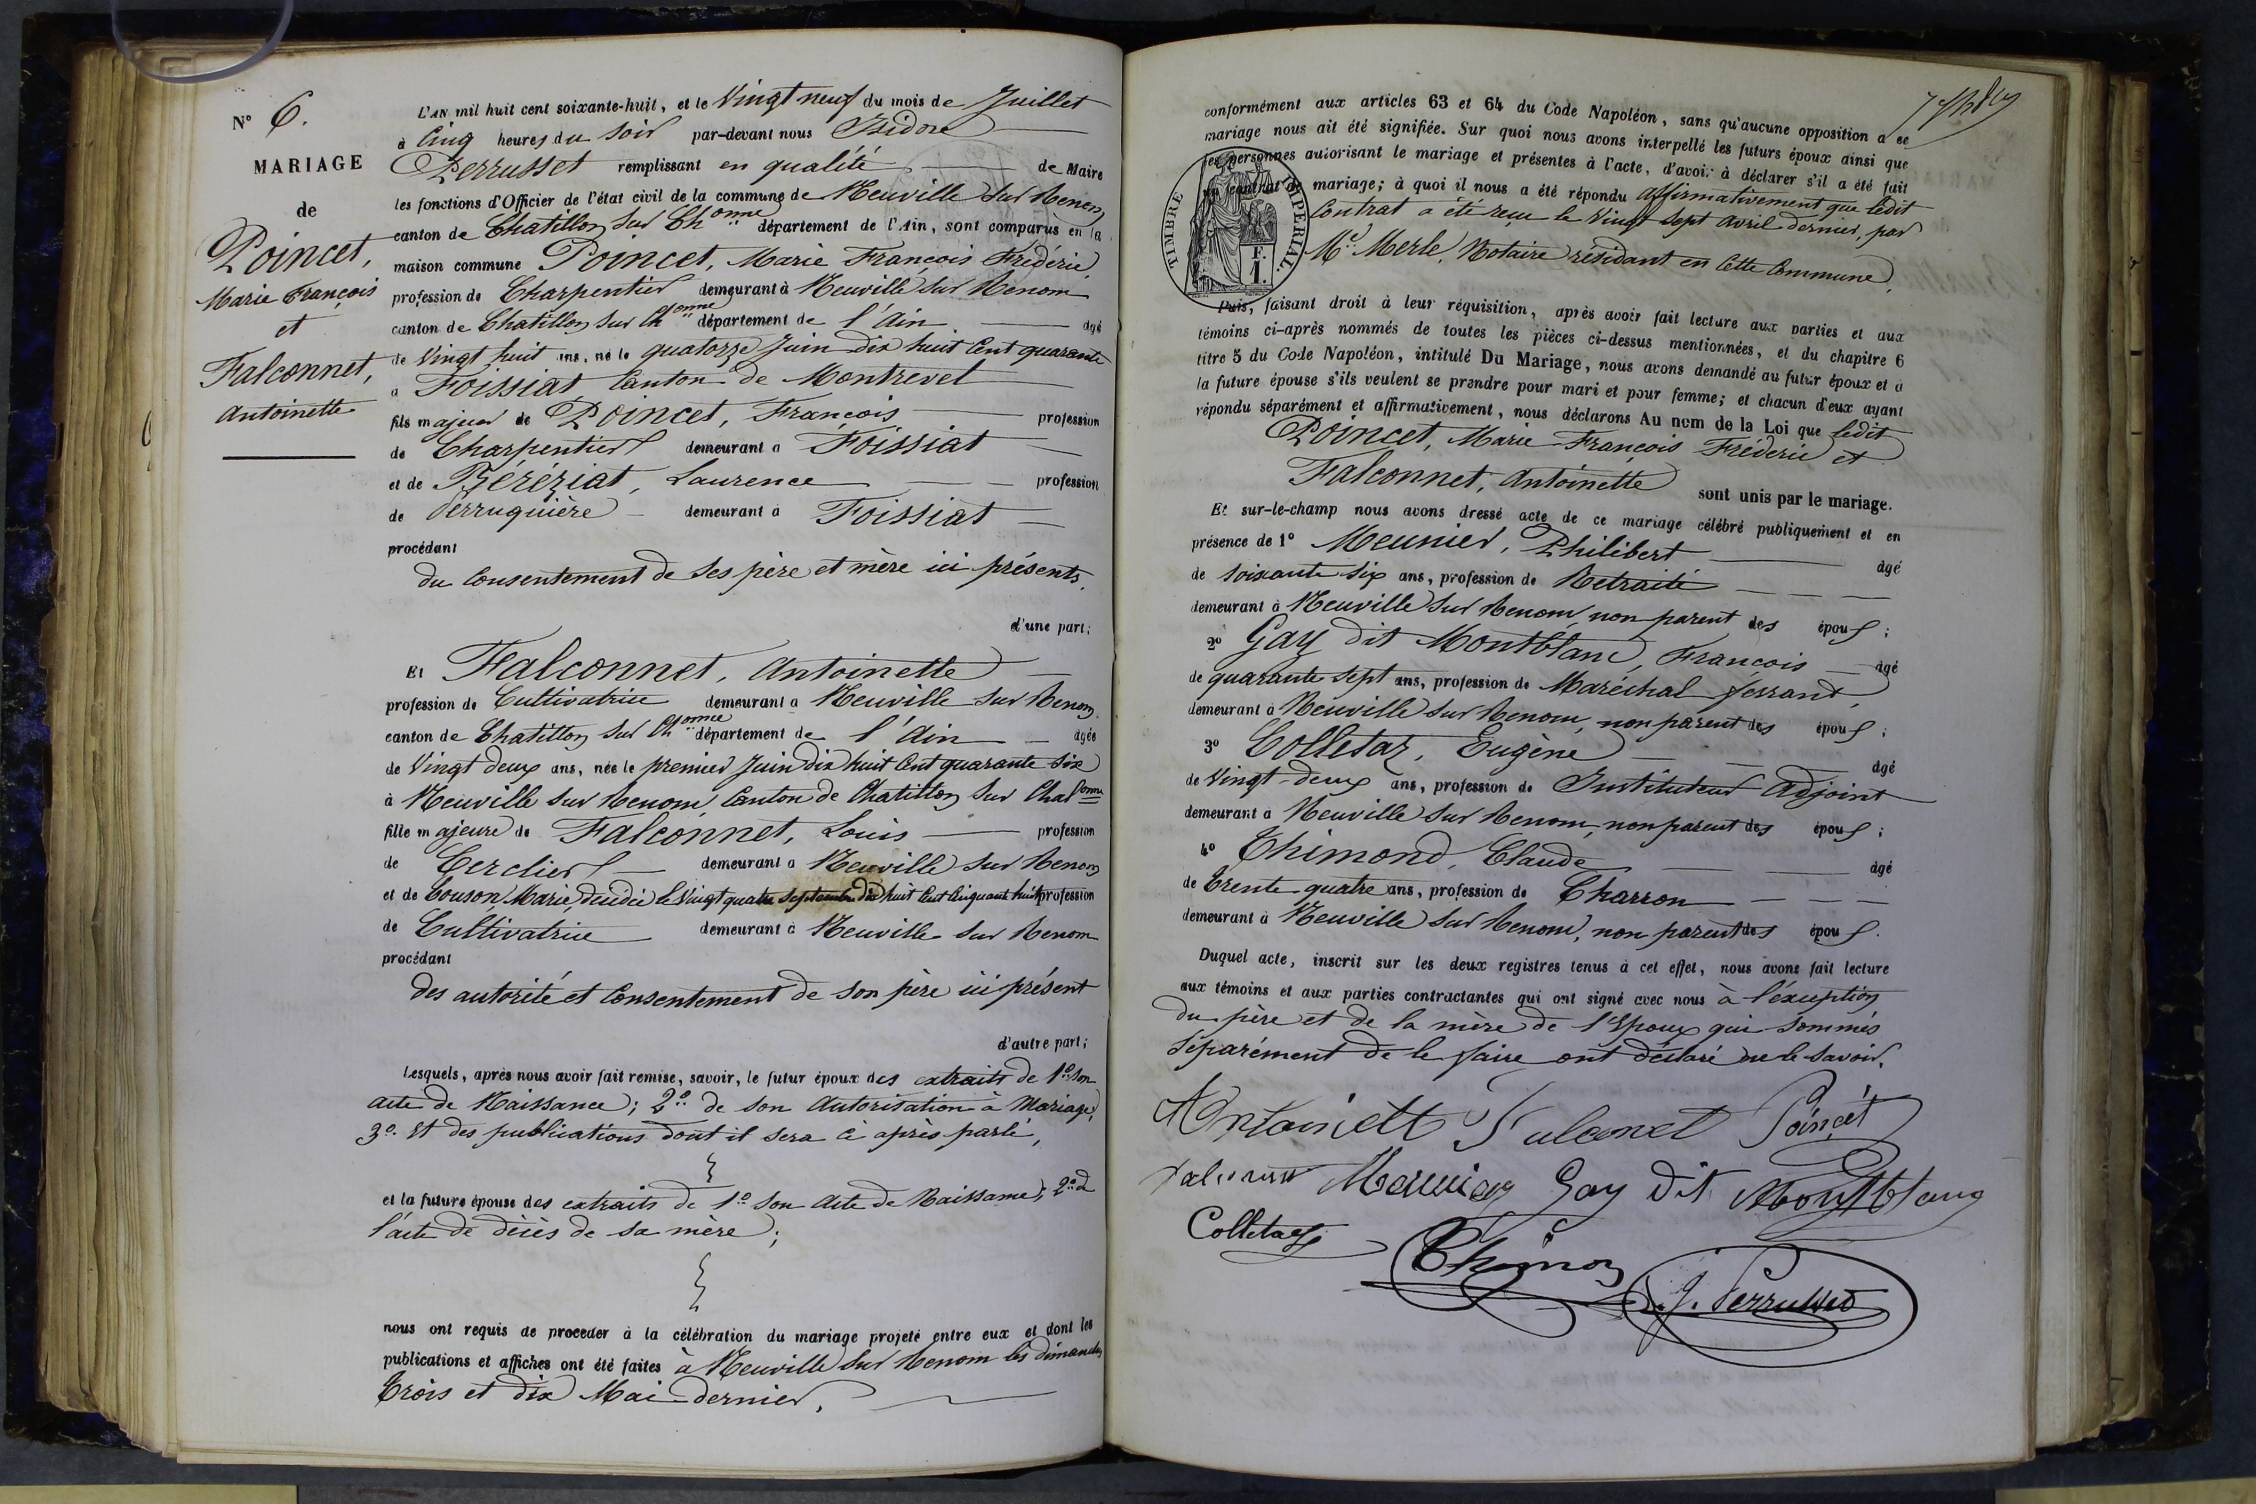 N° 6.
MARIAGE
de
Poincet,
Marie François
et
Falconnet,
Antoinette
L'AN mil huit cent soixante-huit, et le Vingt neuf du mois de Juillet
à Cinq heures du Soir par-devant nous Isidore
Perrusset remplissant en qualité de Maire
les fonctions d'Officier de l'état civil de la commune de Neuville sur Renom
canton de Chatillon sur Chonne département de l'Ain, sont comparus en la
maison commune Poincet, Marie François Fréderic,
profession de Charpentier demeurant à Neuville sur Renom
canton de Chatillon sur Chonne département de l'Ain âgé
de Vingt huit ans, né le quatorze Juin dix huit Cent quarante
à Foissiat Canton de Montrevel
fils majeur de Poincet, François profession
de Charpentier demeurant à Foissiat
et de Béréziat, Laurence profession
de Perruquière demeurant à Foissiat
procédant
du Consentement de ses père et mère ici présents,
d'une part;
Et Falconnet, Antoinette
profession de Cultivatrice demeurant à Neuville sur Renom
canton de Chatillon sur Chonne département de l'Ain âgée
de Vingt deux ans, née le premier Juin dix huit Cent quarante six
à Neuville sur Renom, Canton de Chatillon sur Chalonne
fille majeure de Falconnet, Louis profession
de Cerclier demeurant à Neuville sur Renom
et de Couson Marie, décédée le Vingt quatre Septembre dix huit Cent Cinquante huit profession
de Cultivatrice demeurant à Neuville sur Renom
procédant
des autorité et Consentement de son père ici présent
d'autre part;
Lesquels, après nous avoir fait remise, savoir, le futur époux des extraits de 1° son
acte de Naissance; 2° de son Autorisation à Mariage;
3° Et des publications dont il sera ci après parlé,
et la future épouse des extraits de 1° son Acte de Naissance; 2° de
l'acte de décès de sa mère;
nous ont requis de procéder à la célébration du mariage projeté entre eux et dont les
publications et affiches ont été faites à Neuville sur Renom les dimanches
Trois et dix Mai dernier.
conformément aux articles 63 et 64 du Code Napoléon, sans qu'aucune opposition à ce
mariage nous ait été signifiée. Sur quoi nous avons interpellé les futurs époux ainsi que
les personnes autorisant le mariage et présentes à l'acte, d'avoir à déclarer s'il a été fait
un contrat de mariage; à quoi il nous a été répondu affirmativement que ledit
Contrat a été reçu le Vingt sept avril dernier, par
Me Merle, Notaire résidant en Cette Commune,
TIMBRE IMPERIAL.
F.
1.
Puis, faisant droit à leur réquisition, après avoir fait lecture aux parties et aux
témoins ci-après nommés de toutes les pièces ci-dessus mentionnées, et du chapitre 6
titre 5 du Code Napoléon, intitulé Du Mariage, nous avons demandé au futur époux et à
la future épouse s'ils veulent se prendre pour mari et pour femme; et chacun d'eux ayant
répondu séparément et affirmativement, nous déclarons Au nom de la Loi que ledit
Poincet, Marie François Fréderic et
Falconnet, Antoinette sont unis par le mariage.
Et sur-le-champ nous avons dressé acte de ce mariage célébré publiquement et en
présence de 1° Meunier, Philibert âgé
de soixante six ans, profession de Retraité
demeurant à Neuville sur Renom, non parent des époux;
2° Gay dit Montblanc, François âgé
de quarante sept ans, profession de Maréchal ferrant,
demeurant à Neuville sur Renom, non parent des époux;
3° Colletaz, Eugène âgé
de Vingt-deux ans, profession de Instituteur Adjoint
demeurant à Neuville sur Renom, non parent des époux;
4° Thimond, Claude âgé
de Trente quatre ans, profession de Charron
demeurant à Neuville sur Renom, non parent des époux.
Duquel acte, inscrit sur les deux registres tenus à cet effet, nous avons fait lecture
aux témoins et aux parties contractantes qui ont signé avec nous à l'exception
du père et de la mère de l'Epoux qui sommés
séparément de le faire ont déclaré ne le savoir.
Antoinett Falconet Poincet
Meunier Gay dit Montblanc
Colletaz
Thimon J. Perrusset